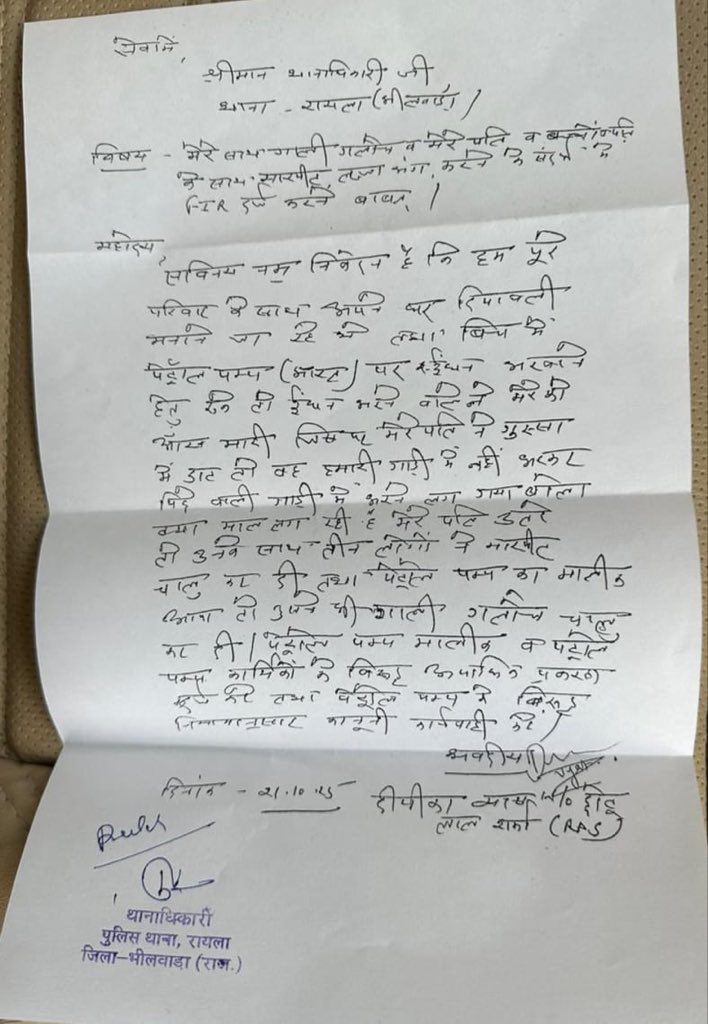 सेवामें,
श्रीमान थानाधिकारी जी
थाना - रायला (भीलवाड़ा)
विषय - मेरे साथ गाली गलोच व मेरे पति व बच्चों
के साथ मारपीट, लज्जा भंग, करने के संदर्भ में
FIR दर्ज करने बाबत् /
महोदय,
सविनय नम्र निवेदन है कि हम पूरे
परिवार के साथ अपने घर दिपावली
मनाने जा रहे थे तथा बिच में
पेट्रोल पम्प (भारत) पर ईंधन भरवाने
हेतु रुके तो ईंधन भरने वाले ने मेरे को
आँख मारी जिस पर मेरे पति ने गुस्सा
में डाट तो वह हमारी गाड़ी में नहीं भरकर
पिछे वाली गाड़ी में भरने लग गया बोला
क्या माल लग रही है मेरे पति उतरे
तो उनके साथ तीन लोगों ने मारपीट
चालु कर दी तथा पेट्रोल पम्प का मालीक
आया तो उसने भी गाली गलोच चालु
कर दी / पेट्रोल पम्प मालीक व पेट्रोल
पम्प कार्मिकों के विरूद्ध अपराधिक प्रकरण
दर्ज करे तथा पेट्रोल पम्प के विरूद्ध
नियमानुसार कानूनी कार्यवाही करे /
भवदीया
दिनांक - 21.10.25
दीपीका व्यास w/o छोटू
लाल शर्मा (RAS)
थानाधिकारी
पुलिस थाना, रायला
जिला-भीलवाडा (राज.)